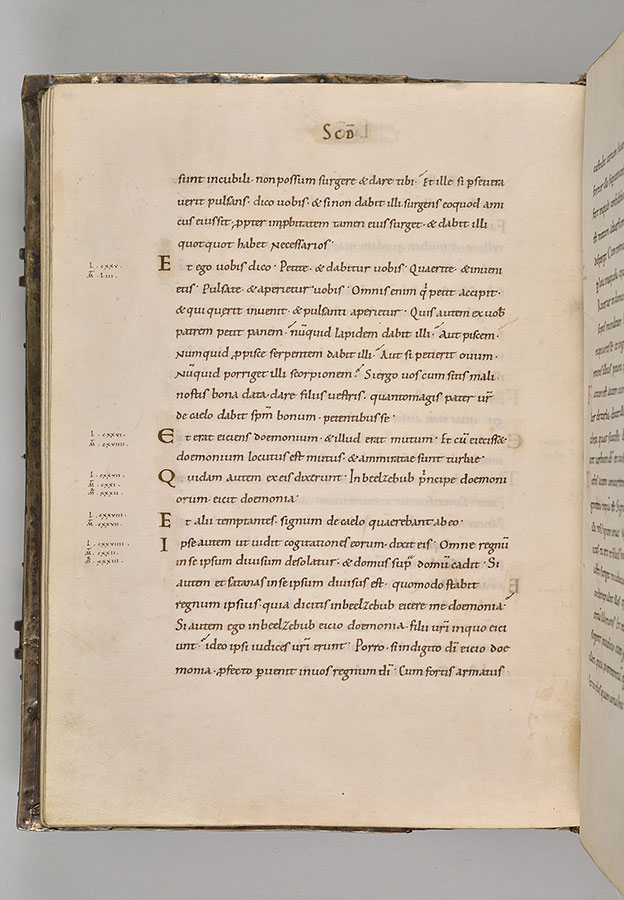 Scđ
sunt in cubili· non possum surgere & dare tibi· Et ille si pseuera
uerit pulsans· dico uobis· & si non dabit illi surgens eo quod ami
cus eius sit· ppter inpbitatem tamen eius surget· & dabit illi
quotquot habet necessarios·
l. cxxv.
m̄. liii.
Et ego uobis dico· Petite· & dabitur uobis· Quaerite· & inueni
etis· Pulsate· & aperietur uobis· Omnis enim q̇ petit accipit·
& qui querit inuenit· & pulsanti aperietur· Quis autem ex uob
patrem petit panem· nūquid lapidem dabit illi· Aut piscem·
Numquid p pisce serpentem dabit illi· Aut si petierit ouum·
Nūquid porriget illi scorpionem· Si ergo uos cum sitis mali·
nostis bona data dare filiis uestris· quanto magis pater ur̄
de caelo dabit spm̄ bonum· petentibus se·
l. cxxvi.
m̄. cxviiii.
Et erat eiciens doemonium· & illud erat mutum· Et cū eiecisse
doemonium locutus est mutus· & ammiratae sunt turbae·
l. cxxvii.
m̄. cxxi.
m̄. xxxii.
Quidam autem ex eis dixerunt· In beelzebub p̄ncipe doemoni
orum· eicit doemonia·
l. cxxviii.
m̄. cxxvii.
Et alii temptantes· signum de caelo quaerebant ab eo·
l. cxxviiii.
m̄. cxxii.
m̄. xxxiii.
Ipse autem ut uidit cogitationes eorum· dixit eis· Omne regnū
in se ipsum diuisum desolatur· & domus sup̄ domū cadit· Si
autem et satanas in se ipsum diuisus est· quomodo stabit
regnum ipsius quia dicitis in beelzebub eicere me doemonia·
Si autem ego in beelzebub eicio doemonia· filii ur̄i in quo eici
unt· ideo ipsi iudices ur̄i erunt· Porro· si in digito dī eicio doe
monia· pfecto puenit in uos regnum dī· Cum fortis armatus